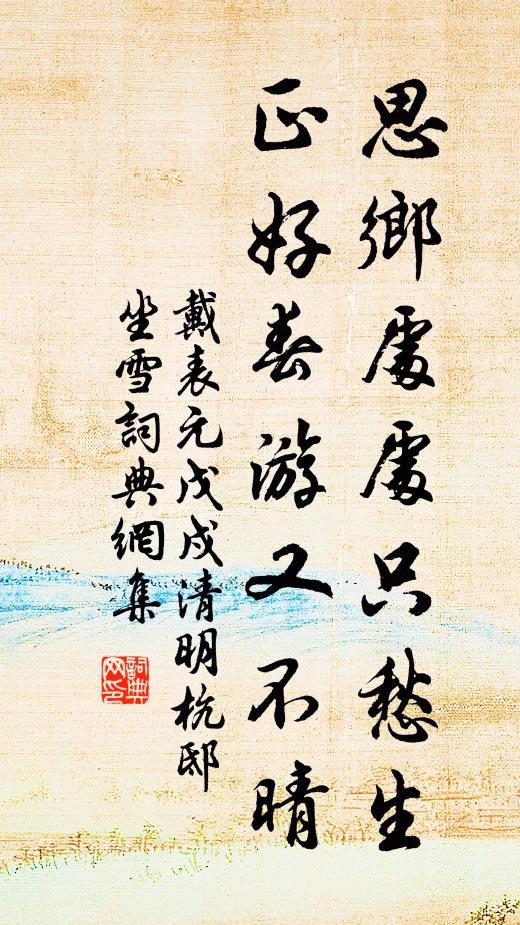 思鄉處處只愁生
正好春游又不晴
戴表元戊戌清明杭邸
坐雪詞典網集
詞典网印